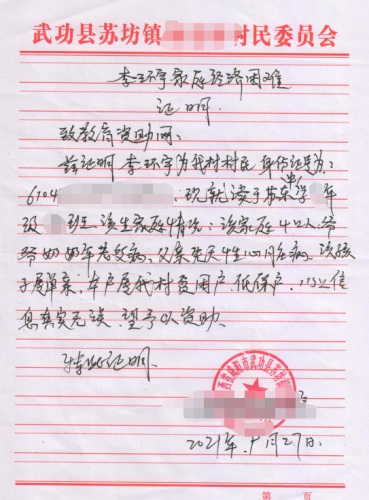 武功县苏坊镇 村民委员会
李环宇家庭经济困难
证明
致教育资助网:
兹证明 李环宇为我村村民 身份证号为:
6104 ,现就读于苏东 学 年
级 班 该生家庭情况:该家庭4口人,爷
爷奶奶年老多病,父亲先天性心脏病。该孩
子属单亲,本户属我村贫困户,低保户,以上信
息真实无误,望予以资助
特此证明
陕西省咸阳市武功县苏坊镇
2021年十月27日
第 页